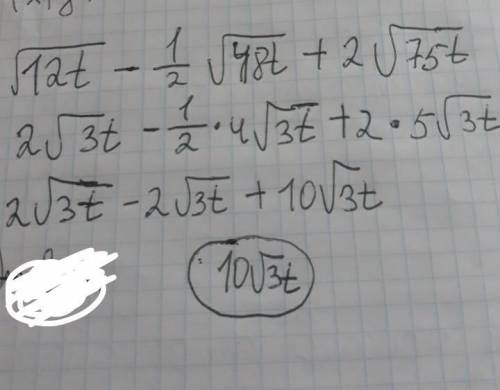 √12t - 1/2 √48t + 2√75t
2√3t - 1/2 · 4√3t + 2 · 5√3t
2√3t - 2√3t + 10√3t
10√3t